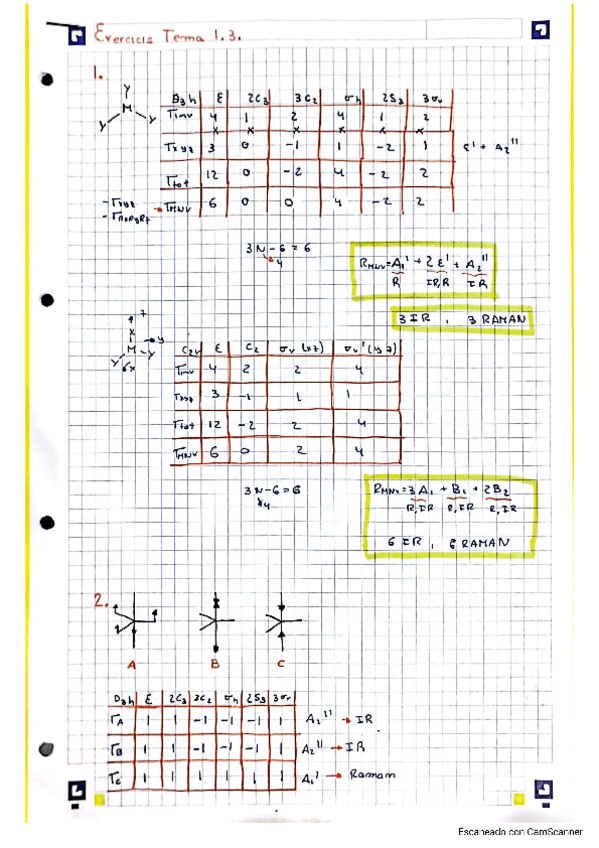 Exercicis Tema 1.3.
1.
D3h E 2C3 3C2 σh 2S3 3σv
Γinv 4 1 2 4 1 2
x x x x x x
Γxyz 3 0 -1 1 -2 1 E' + A2''
Γtot 12 0 -2 4 -2 2
- Γxyz
- ΓRxRyRz → ΓMNV 6 0 0 4 -2 2
Y
M
Y Y
3N-6=6
4
RMNV = A1' + 2E' + A2''
R IR,R IR
3 IR , 3 RAMAN
z
X
M → y
Y Y
x
C2v E C2 σv (xz) σv' (yz)
Γinv 4 2 2 4
Γxyz 3 -1 1 1
Γtot 12 -2 2 4
ΓMNV 6 0 2 4
3N-6=6
4
RMNV = 3A1 + B1 + 2B2
R,IR R,IR R,IR
6 IR , 6 RAMAN
2.
A B C
D3h E 2C3 3C2 σh 2S3 3σv
ΓA 1 1 -1 -1 -1 1 A2'' → IR
ΓB 1 1 -1 -1 -1 1 A2'' → IR
ΓC 1 1 1 1 1 1 A1' → Raman
Escaneado con CamScanner